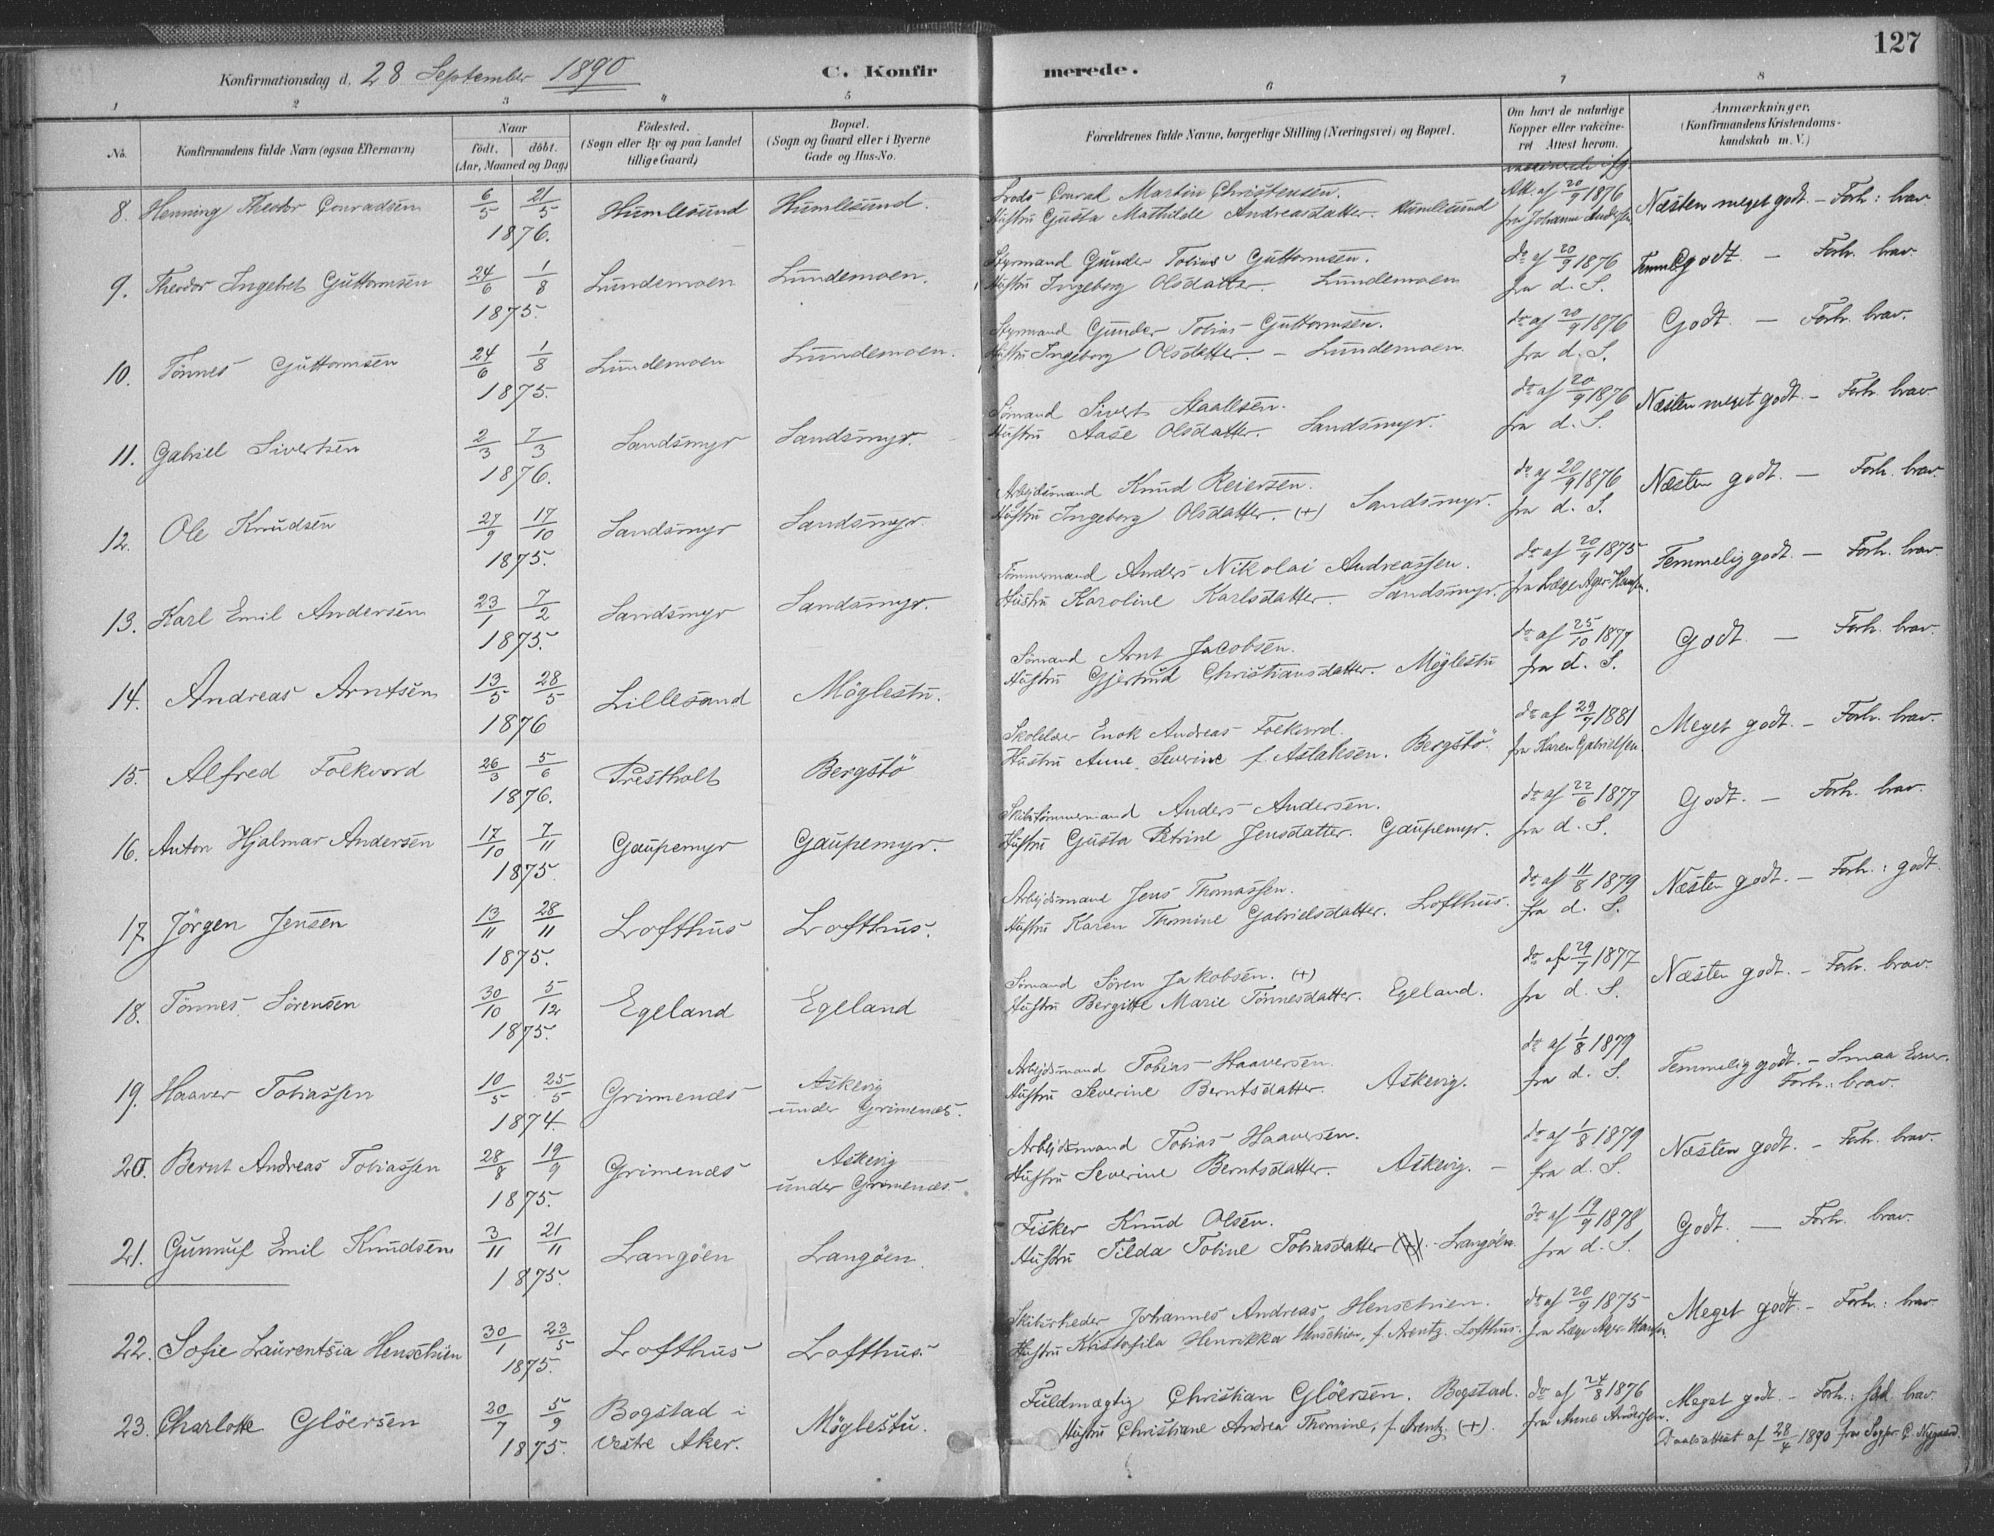 127
Konfirmationsdag d. 28 September 1890
C. Konfirmerede.
1 2 3 4 5 6 7 8
No.
Konfirmandens fulde Navn (ogsaa Efternavn)
Naar
født. døbt.
(Aar, Maaned og Dag)
Fødested.
(Sogn eller By og paa Landet
tillige Gaard)
Bopæl.
(Sogn og Gaard eller i Byerne
Gade og Hus-No.
Forældrenes fulde Navne, borgerlige Stilling (Næringsvei) og Bopæl.
Om havt de naturlige
Kopper eller vakcineret Attest herom.
Anmærkninger.
(Konfirmandens Kristendomskundskab m. V.)
8. Henning Theodor Conradsen 6/5 21/5 1876. Humlesund Humlesund.
Lods Conrad Martin Christensen.
Hustru Gusta Mathilde Andreasdatter. Humlesund
vaccinerede ifg.
Att. af 20/9 1876
fra Johanne Andersen
Næsten meget godt. – Forh: brav
9. Theodor Ingebret Guttormsen 24/6 1/8 1875. Lundemoen Lundemoen.
Styrmand Gunder Tobias Guttormsen.
Hustru Ingeborg Olsdatter. Lundemoen
do af 20/9 1876
fra d. S.
Temmelig godt. – Forh. brav
10. Tönnes Guttormsen 24/6 1/8 1875. Lundemoen Lundemoen.
Styrmand Gunder Tobias Guttormsen.
Hustru Ingeborg Olsdatter. – Lundemoen
do af 20/9 1876
fra d. S.
Godt. – Forh. brav.
11. Gabriel Sivertsen 2/3 7/3 1876. Sandsmyr Sandsmyr.
Sömand Sivert Staalesen.
Hustru Aase Olsdatter. Sandsmyr.
do af 20/9 1876
fra d. S.
Næsten meget godt. – Forh. brav
12. Ole Knudsen 27/9 17/10 1875. Sandsmyr Sandsmyr.
Arbejdsmand Knud Reiersen.
Hustru Ingeborg Olsdatter. (+) Sandsmyr.
do af 20/9 1876
fra d. S.
Næsten godt. – Forh. brav.
13. Karl Emil Andersen 23/1 7/2 1875. Sandsmyr Sandsmyr.
Tömmermand Anders Nikolai Andreassen.
Hustru Karoline Karlsdatter Sandsmyr.
do af 20/9 1875
fra Læge Ager-Hansen.
Temmelig godt. – Forh. brav
14. Andreas Arntsen 13/5 28/5 1876 Lillesand Möglestu.
Sömand Arnt Jacobsen.
Hustru Gjertrud Christiansdatter. Möglestu
do af 25/10 1877
fra d. S.
Godt. – Forh. brav.
15. Alfred Folkvord 26/3 5/6 1876. Prestholt Bergstö
Skolelær Enok Andreas Folkvord.
Hustru Anne Severine f. Aslaksen. Bergstö.
do af 29/7 1881
fra Karen Gabrielsen
Meget godt. – Forh. brav.
16. Anton Hjalmar Andersen 17/10 7/11 1875. Gaupemyr Gaupemyr.
Skibstömmermand Anders Andersen.
Hustru Gusta Petrine Jensdatter. Gaupemyr.
do af 22/6 1877
fra d. S.
Godt. – Forh. brav.
17. Jörgen Jensen 13/11 28/11 1875. Lofthus Lofthus.
Arbejdsmand Jens Thomassen.
Hustru Karen Thomine Gabrielsdatter. Lofthus.
do af 11/8 1879
fra d. S.
Næsten godt. – Forh.: godt.
18. Tönnes Sörensen 30/10 5/12 1875. Egeland Egeland
Sömand Sören Jakobsen. (+)
Hustru Bergitte Marie Tönnesdatter. Egeland.
do af 29/7 1877
fra d. S.
Næsten godt. – Forh. brav.
19. Haaver Tobiassen 10/5 25/5 1874. Grimenæs Askevig
under Grimenæs.
Arbejdsmand Tobias Haaversen.
Hustru Severine Berntsdatter. Askevig.
do af 1/8 1879
fra d. S.
Temmelig godt. – Smaa Evner.
Forh.: brav.
20. Bernt Andreas Tobiassen 28/8 19/9 1875. Grimenæs Askevig
under Grimenæs.
Arbejdsmand Tobias Haaversen.
Hustru Severine Berntsdatter. Askevig. –
do af 1/8 1879
fra d. S.
Næsten godt. – Forh. brav.
21. Gunnuf Emil Knudsen 3/11 21/11 1875. Langöen Langöen
Fisker Knud Olsen.
Hustru Tilda Tobine Tobiasdatter (+). – Langöen
do af 19/9 1878
fra d. S.
Godt. – Forh. brav.
22. Sofie Laurentsia Henschien 30/1 23/5 1875. Lofthus Lofthus.
Skibsrheder Johannes Andreas Henschien.
Hustru Kristofila Henrikka Henschien, f. Arentz. Lofthus.
do af 20/9 1875
fra Læge Ager-Hansen
Meget godt. – Forh.: brav
23. Charlotte Glöersen 20/7 5/9 1875. Bogstad i
Vestre Aker. Möglestu.
Fuldmægtig Christian Glöersen. Bogstad.
Hustru Christiane Andrea Thomine, f. Arentz (+).
do af 24/8 1876
fra Anne Andersen.
Meget godt – Forh.: brav
Daabsattest af 28/4 1890 fra Sogpr. C.